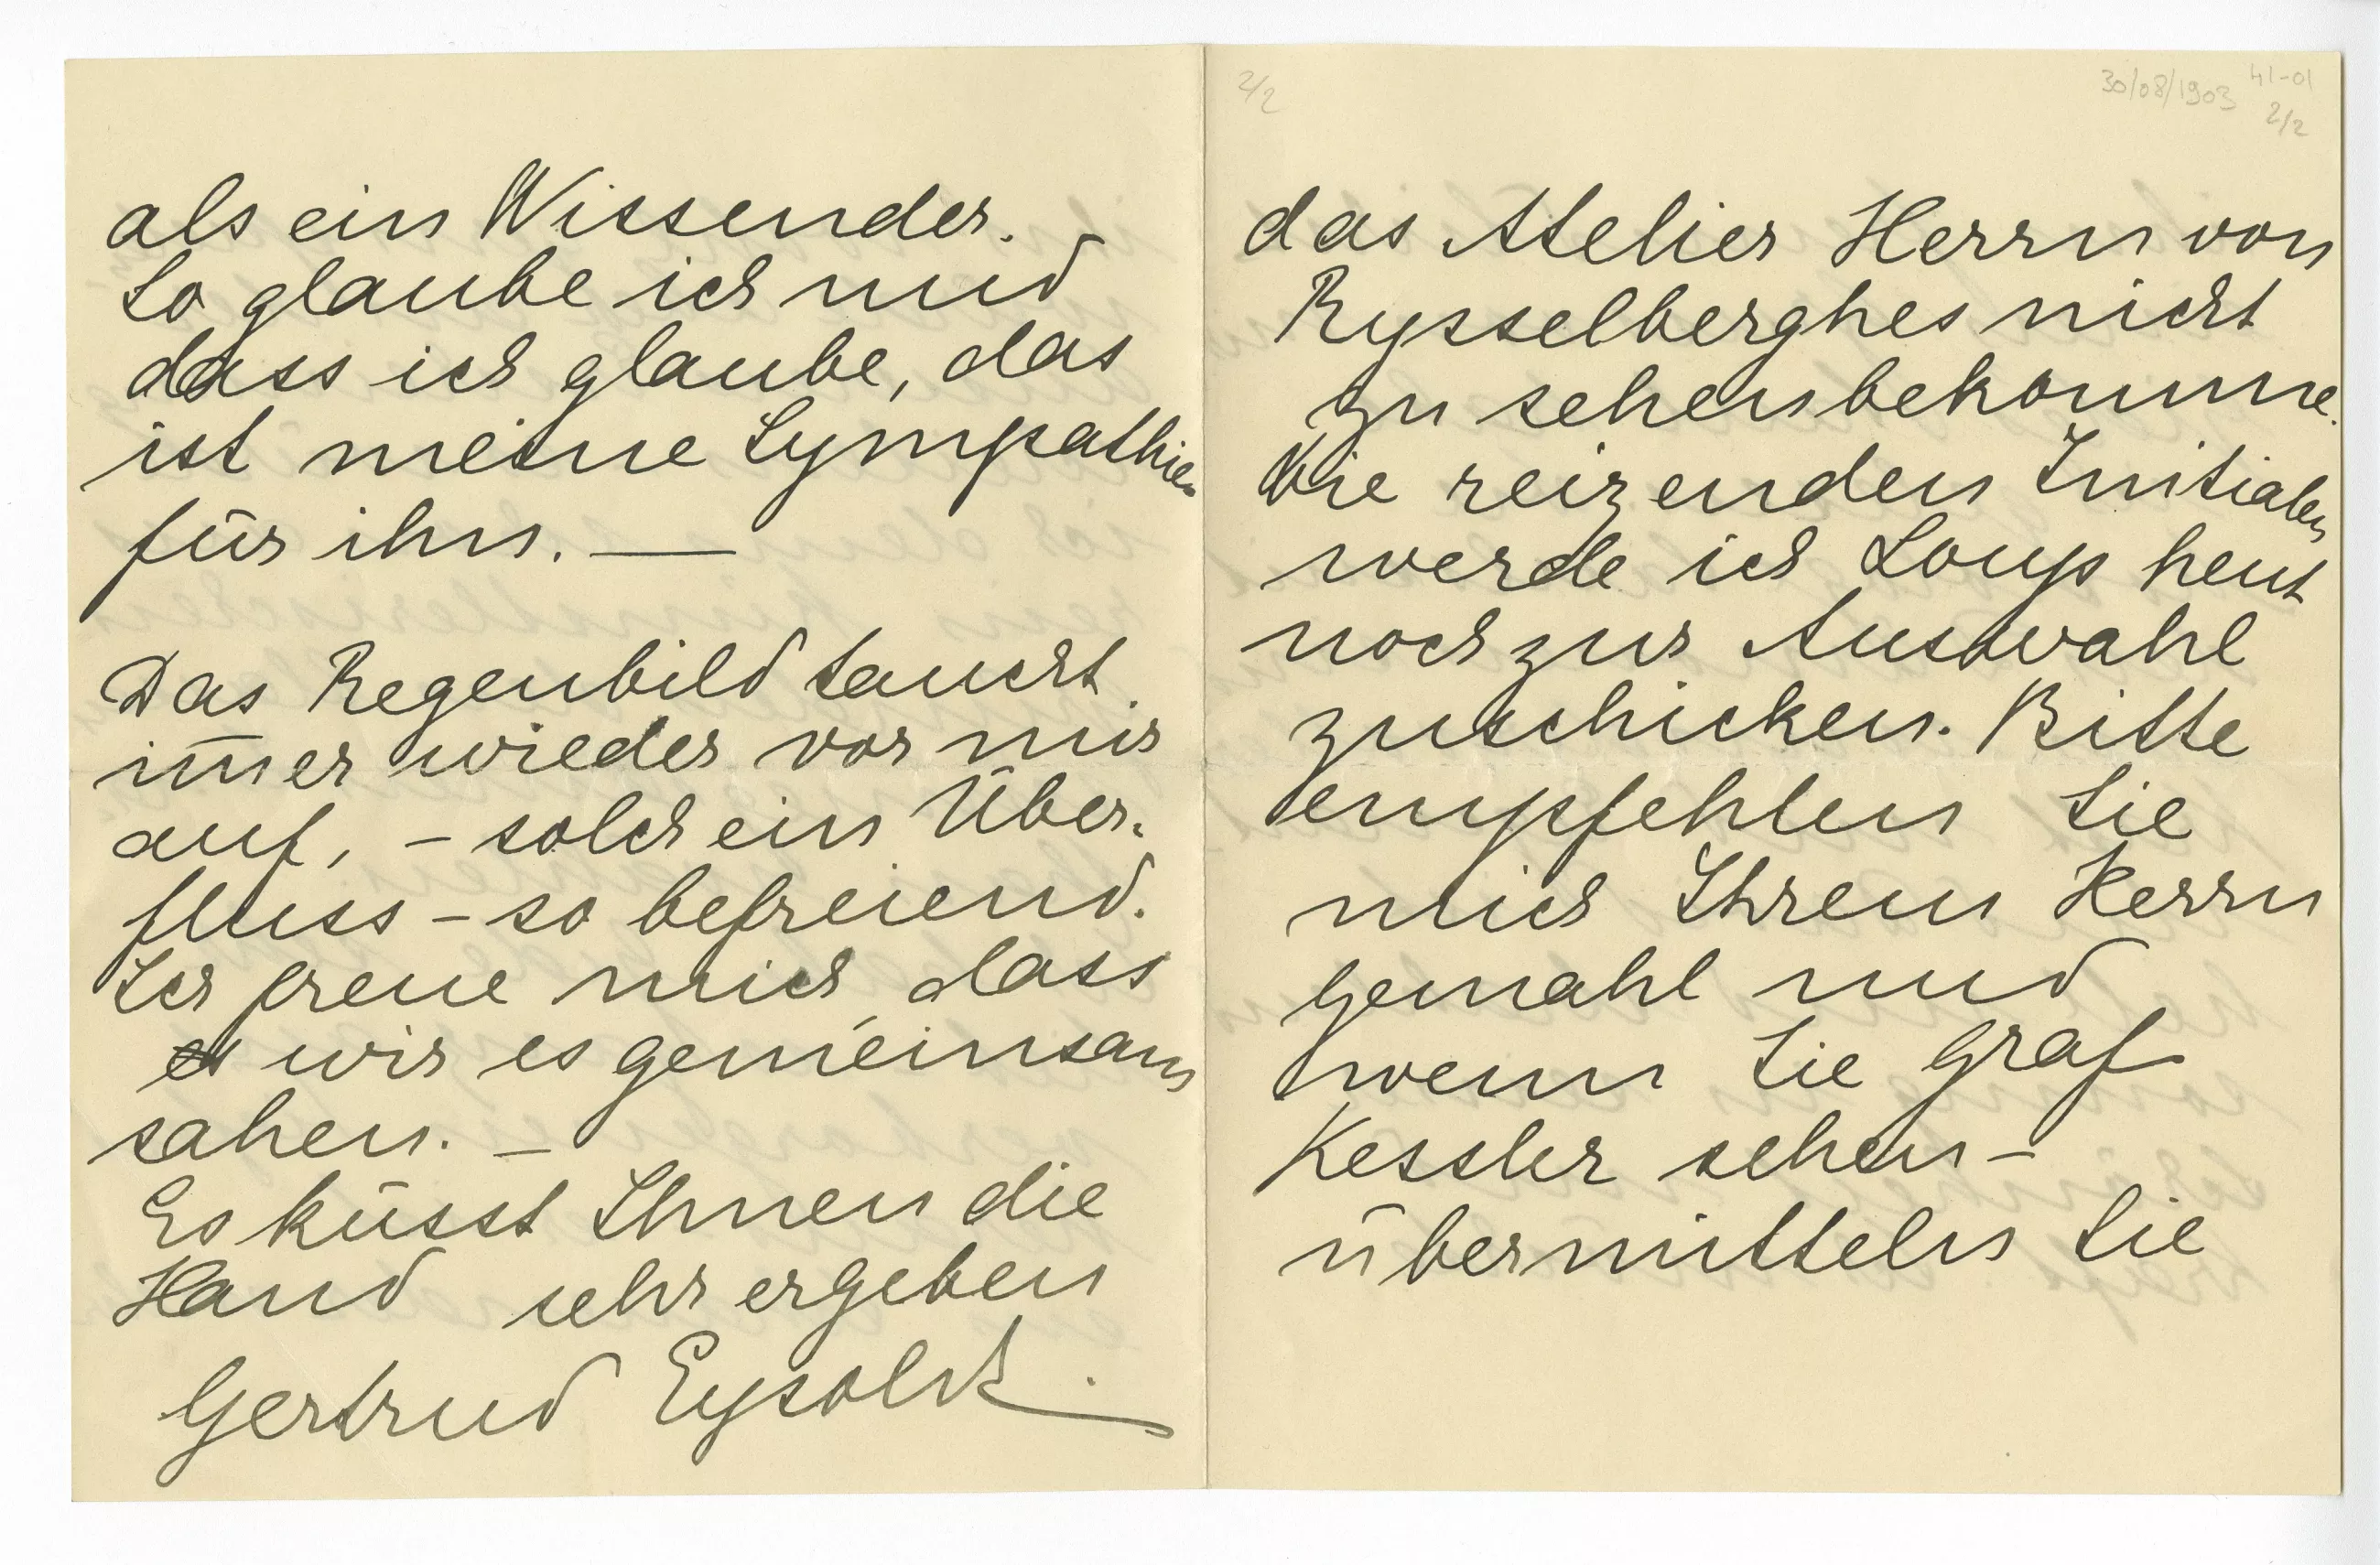 als ein Wissender.
So glaube ich und
dass ich glaube, das
ist meine Sympathie
für ihn. —
Das Regenbild taucht
im̅er wieder vor mir
auf, – solch ein Über-
fluss – so befreiend.
Ich freue mich, dass
es wir es gemeinsam
sahen. –
Es küsst Ihnen die
Hand sehr ergeben
Gertrud Eysoldt.
2/2
30/08/1903
41-01
2/2
das Atelier Herrn von
Rysselberghes nicht
zu sehen bekomme.
Die reizenden Initialen
werde ich Loup heut
noch zur Auswahl
zuschicken. Bitte
empfehlen Sie
mich Ihrem Herrn
Gemahl und
wenn Sie Graf
Kessler sehen –
übermitteln Sie